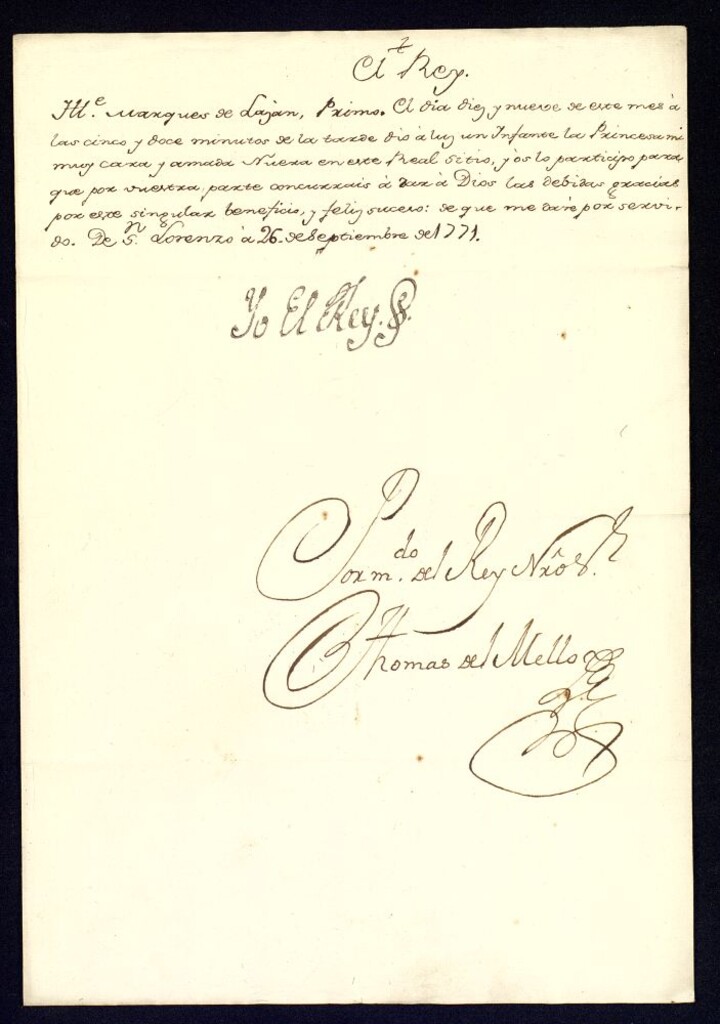 +
El Rey.
Ill.e Marques de Lazan, Primo. El dia diez y nueve de este mes à
las cinco y doce minutos de la tarde diò à luz un Infante la Princesa mi
muy cara y amada Nuera en este Real Sitio, y os lo participo para
que por vuestra parte concurrais à dar à Dios las debidas gracias
por este singular beneficio, y feliz suceso: de que me darè por servi-
do. De S.n Lorenzo à 26. de Septiembre de 1771.
Yo El Rey.
Por m.do del Rey Nrô S.r
Thomas del Mello